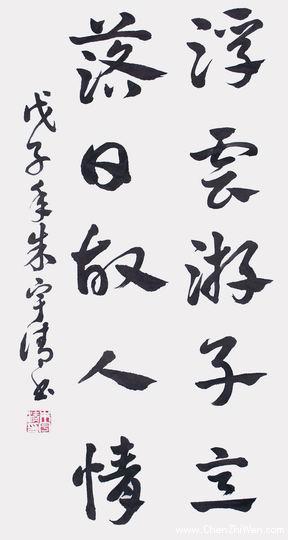 浮雲游子意
落日故人情
戊子年朱宇清书
www.ChenZhiWen.com